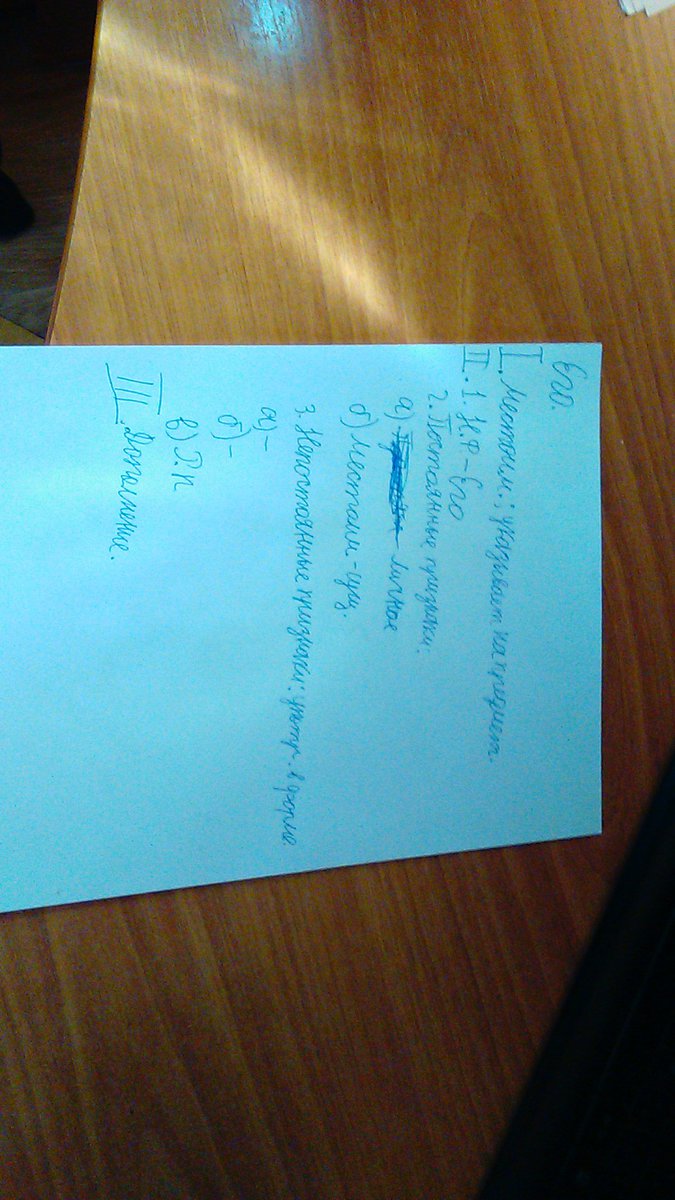 Его.
I. Местоим.; указывает на предмет.
II. 1. Н.Ф - Его
2. Постоянные признаки:
а) личное
б) Местоим - сущ.
3. Непостоянные признаки: употр. в форме
а) -
б) -
в) Р.п
III. Дополнение.